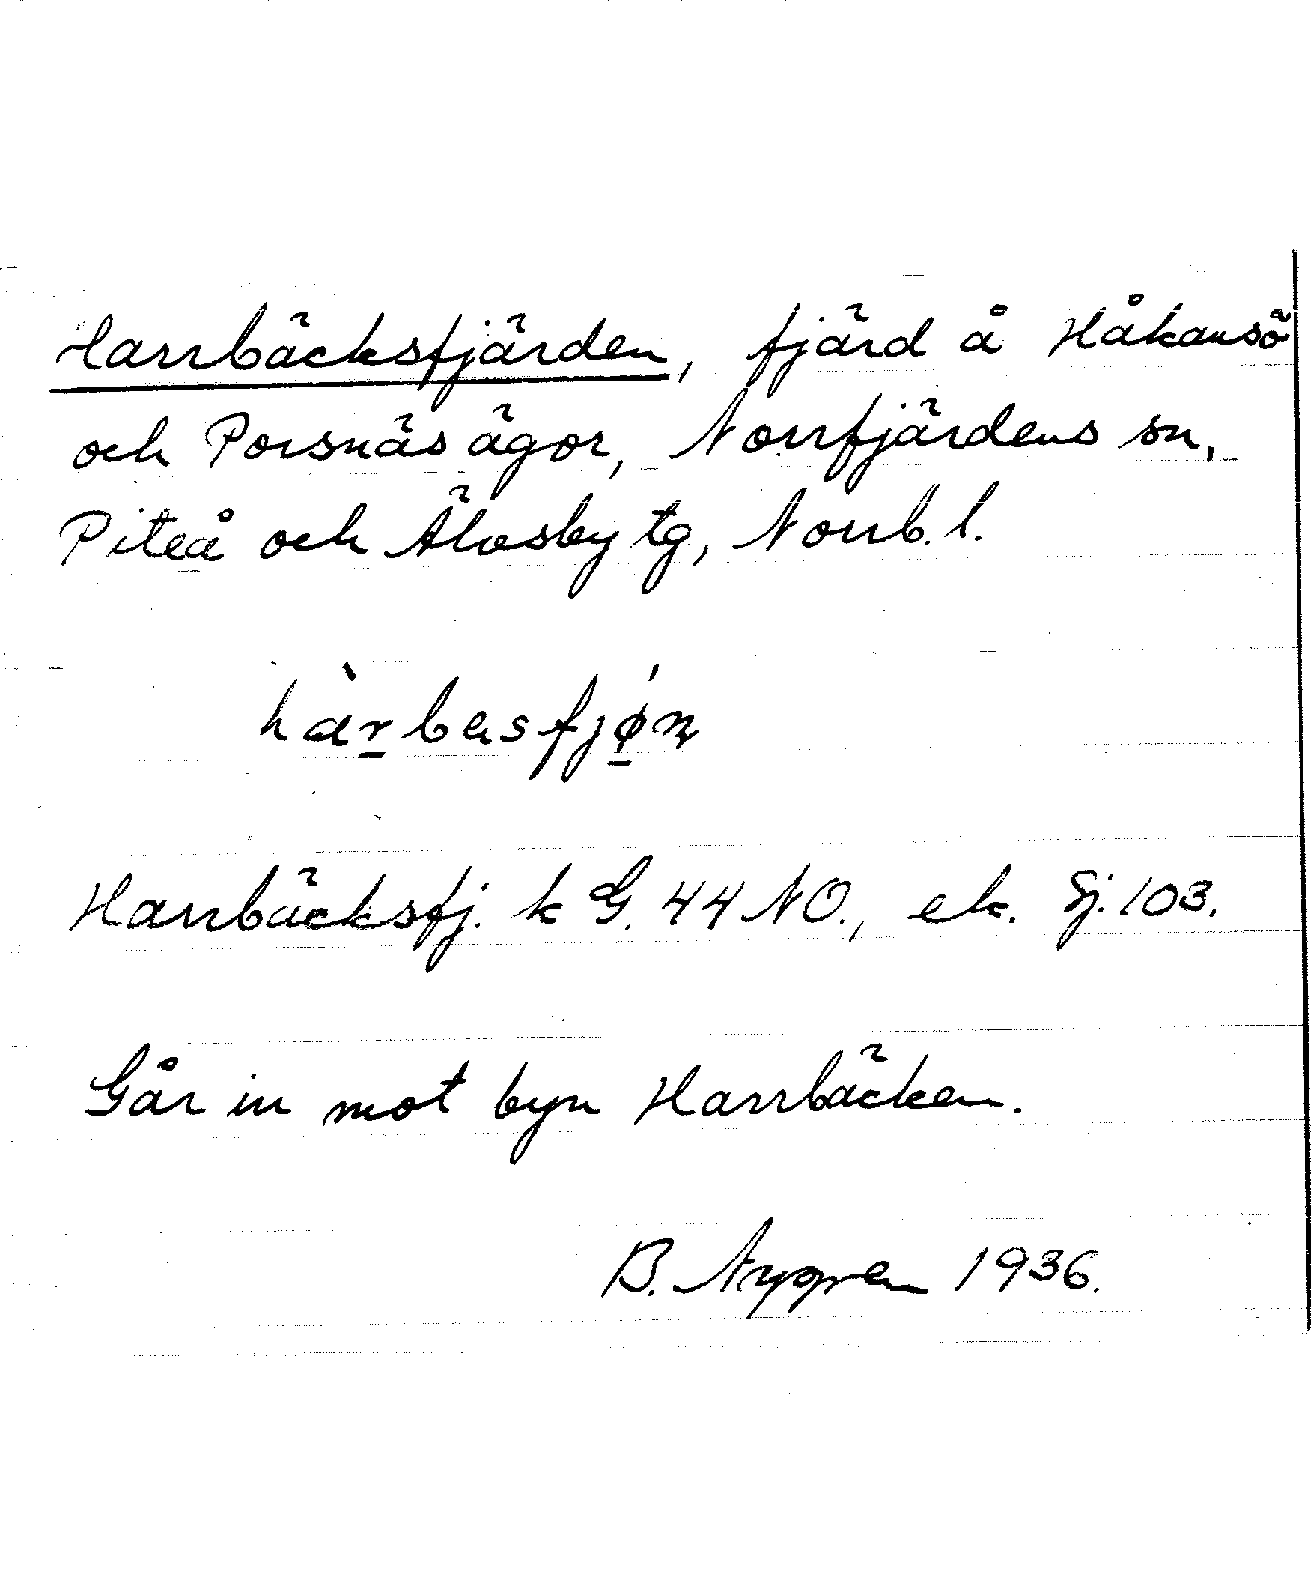 Harrbäcksfjärden, fjärd å Håkansö
och Porsnäs ägor, Norrfjärdens sn,
Piteå och Älvsby tg, Norrb. l.
hàr̲basfjǿ̲ṇ
Harrbäcksfj. k G. 44 NO., ek. Fj. 103.
Går in mot byn Harrbäcken.
B. Nygren 1936.